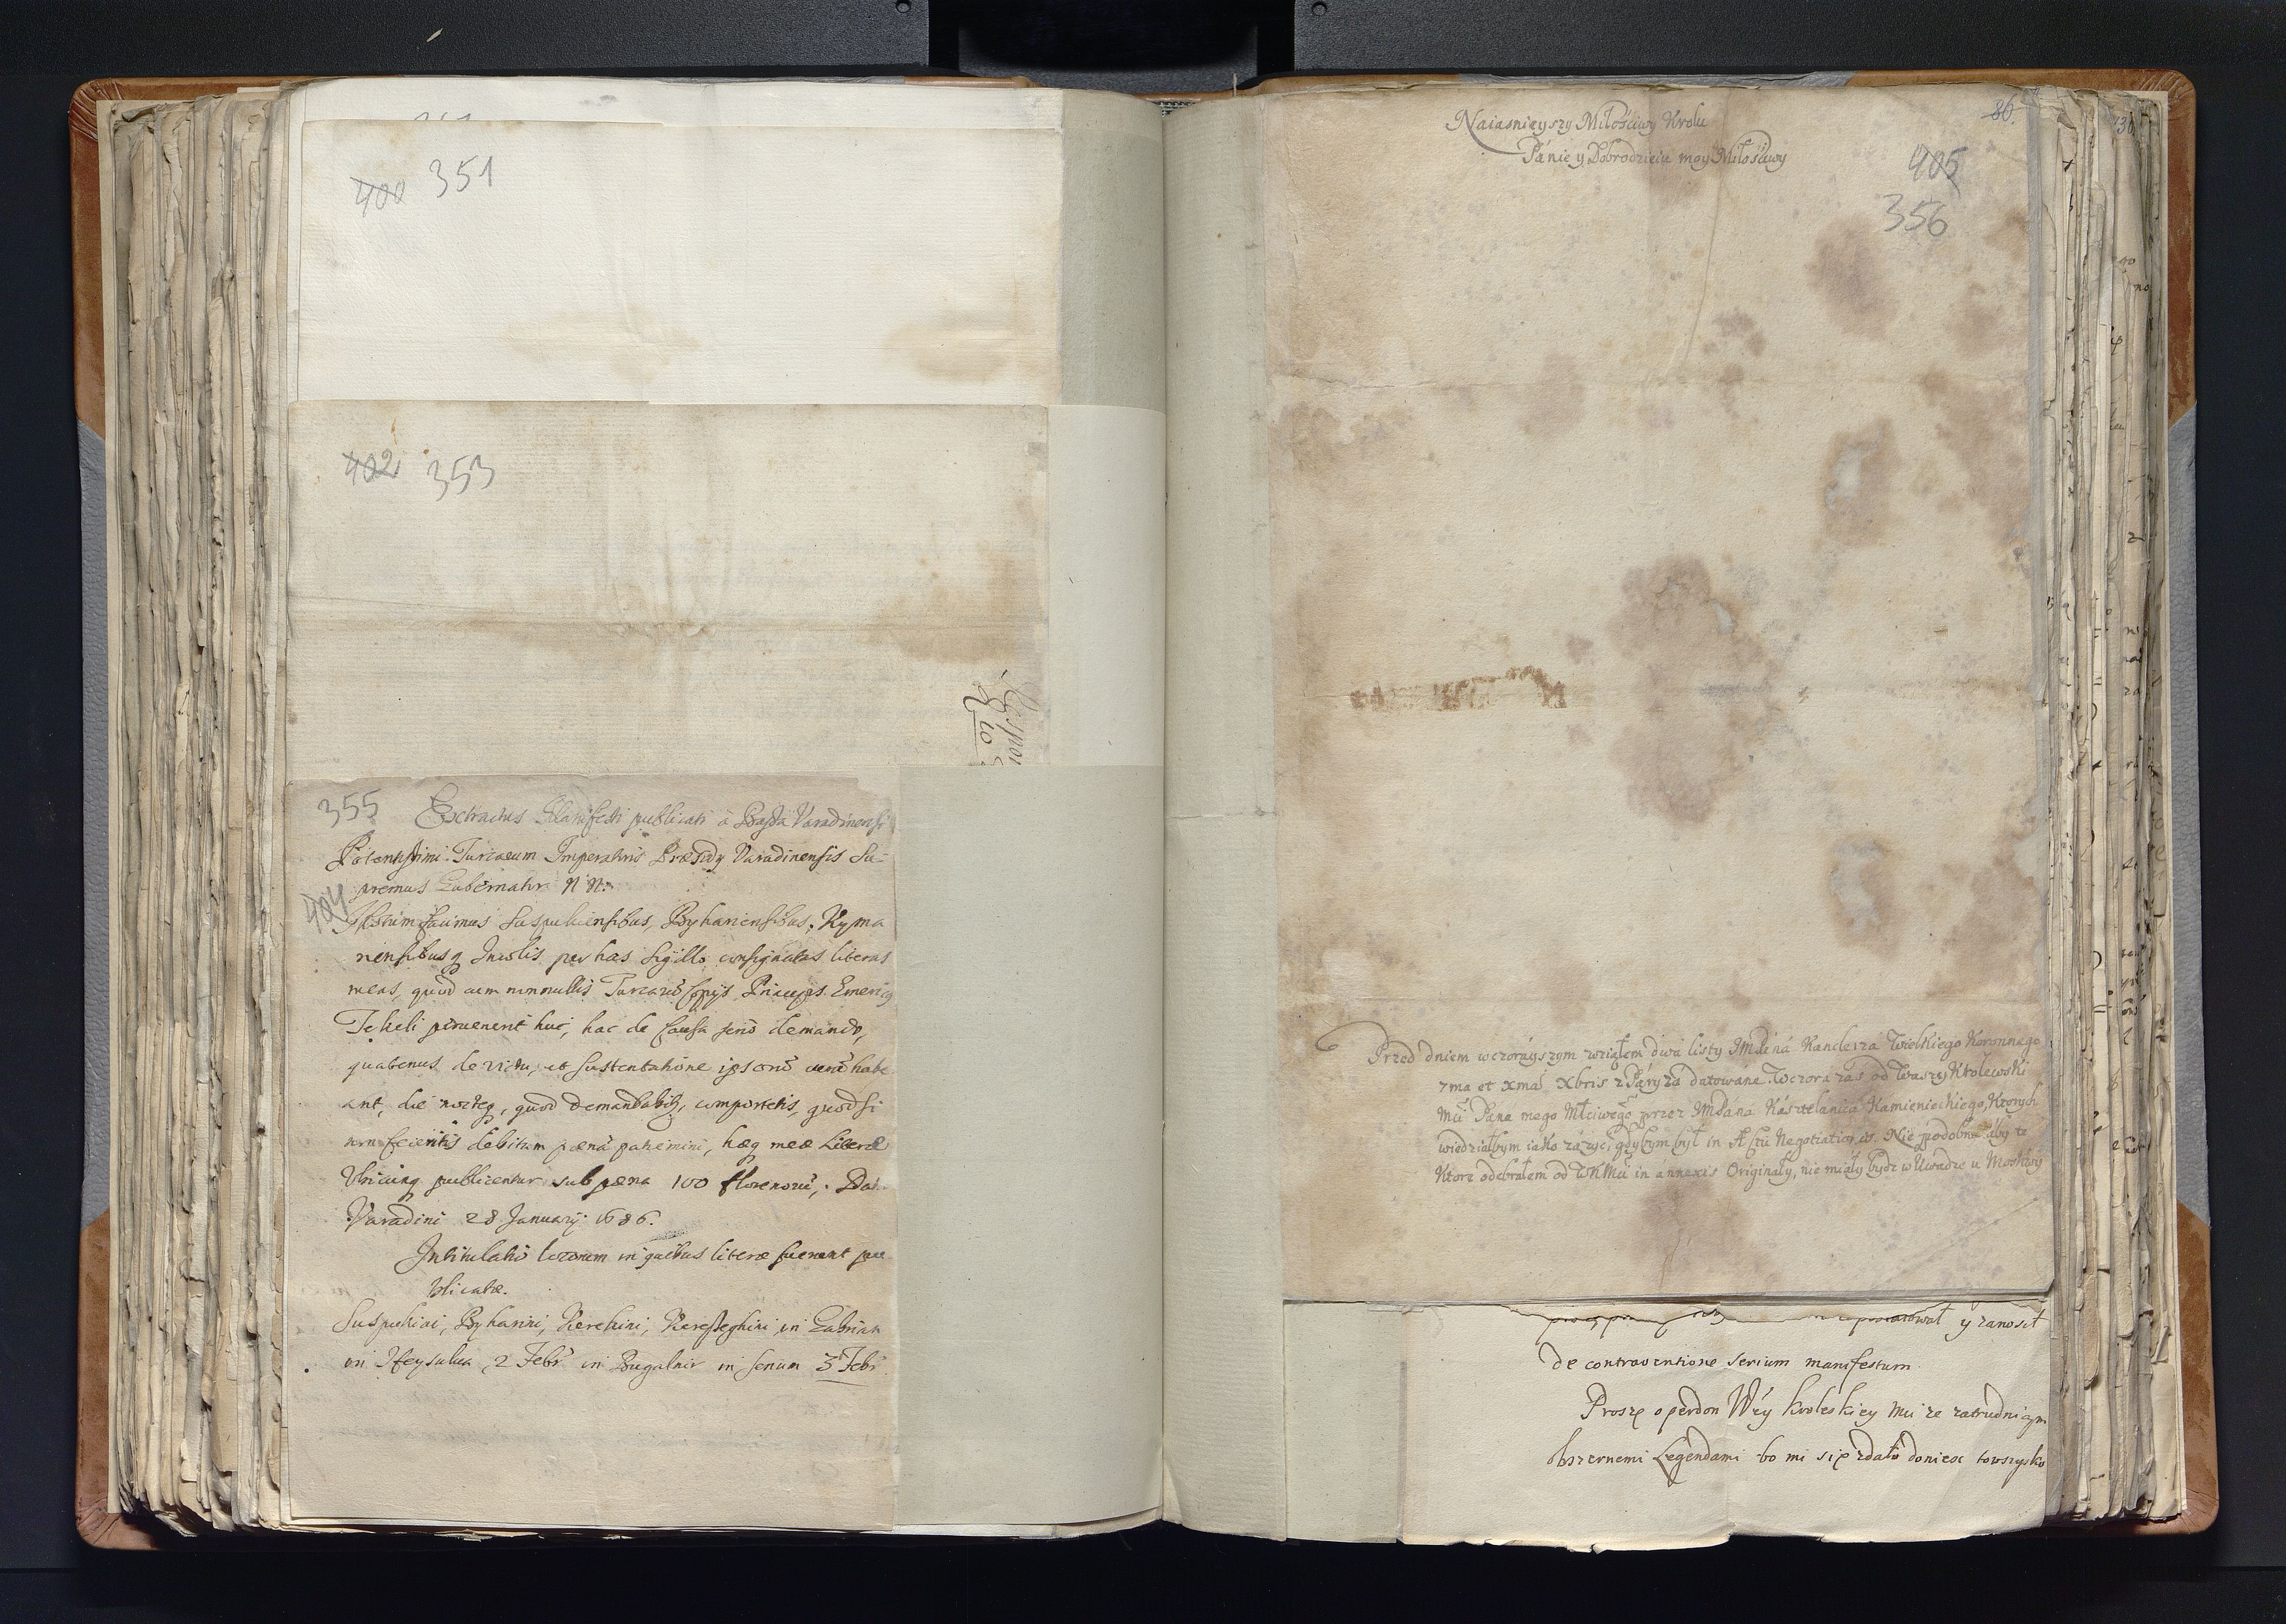 400 351
402 353
355
Extractus Manifesti publicati a Bassa Varadinensi
Potentissimi Turcarum Imperatoris Præsidy Varadinensis Su-
premus Gubernator N N.
404
Notum facimus Suspukiensibus, Byhariensibus, Kyma
riensibusq Incolis per has Sigillo consignatas literas
meas, quod cum nonnullis Turcarũ Copijs Princeps Emeriq
Tekeli pervenerit huc, hac de causa serio demando,
quatenus de victu, et sustentatione ipsorũ curã habe
ant, die nocteq, quod demandabitr, comportetis, quod si
non feceritis debitam pœnã patiemini, hæq meæ Literæ
Ubicunq publicentur sub pœna 100 florenorũ, Dat.
Varadini 28 January 1686.
Intitulatio locorum in quibus literæ fuerunt pu
blicatæ.
Suspukini, Byharini, Kerekini, Keresseghini in
in 2 Febr in in 3 Febr
86.
Naiasnieyszy Miłościwy Krolu
Pánie y Dobrodzieiu moy Miłościwy
405
356
Przed dniem wczorayszym wziąłem dwa listy JMPáná Kanclerzá Wielkiego Koronnego
7ma et xma Xbris z Páryża datowáne. Wczora zas od Waszey Krolewski
Mci Páná mego Młciwego przez JMPáná Kásztelanicá Kamienieckiego, Ktorych
wiedziałbym iáko záżyć, gdybym był in Actu Negotiationis. Nie podobna áby te
Ktore odebrałem od WKMci in ánnexis Originały, nie miały bydz w Uwadze u Moskwy
y zanosił
de contraventione serium manifestum.
Proszę o perdon Wey Kroleskiey Mci ze zatrudniam
obszernemi Legendami bo mi się zdało donieść to wszysko